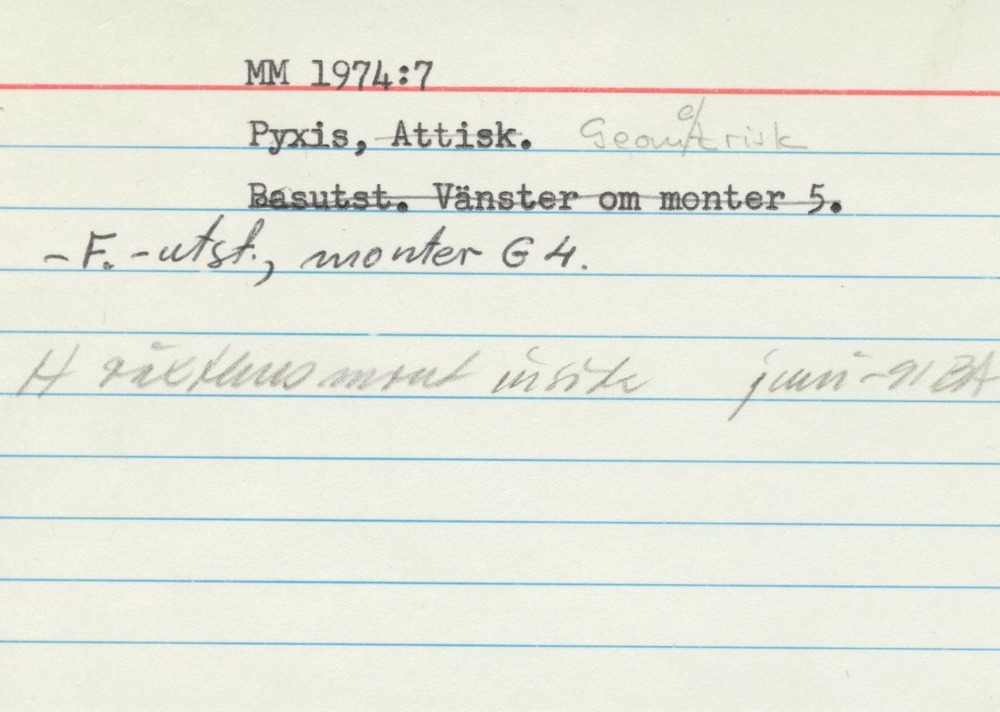 MM 1974:7
Pyxis, Attisk. Geometrisk
Basutst. Vänster om monter 5.
- F. -utst., monter G 4.
H mont juni -91 BA